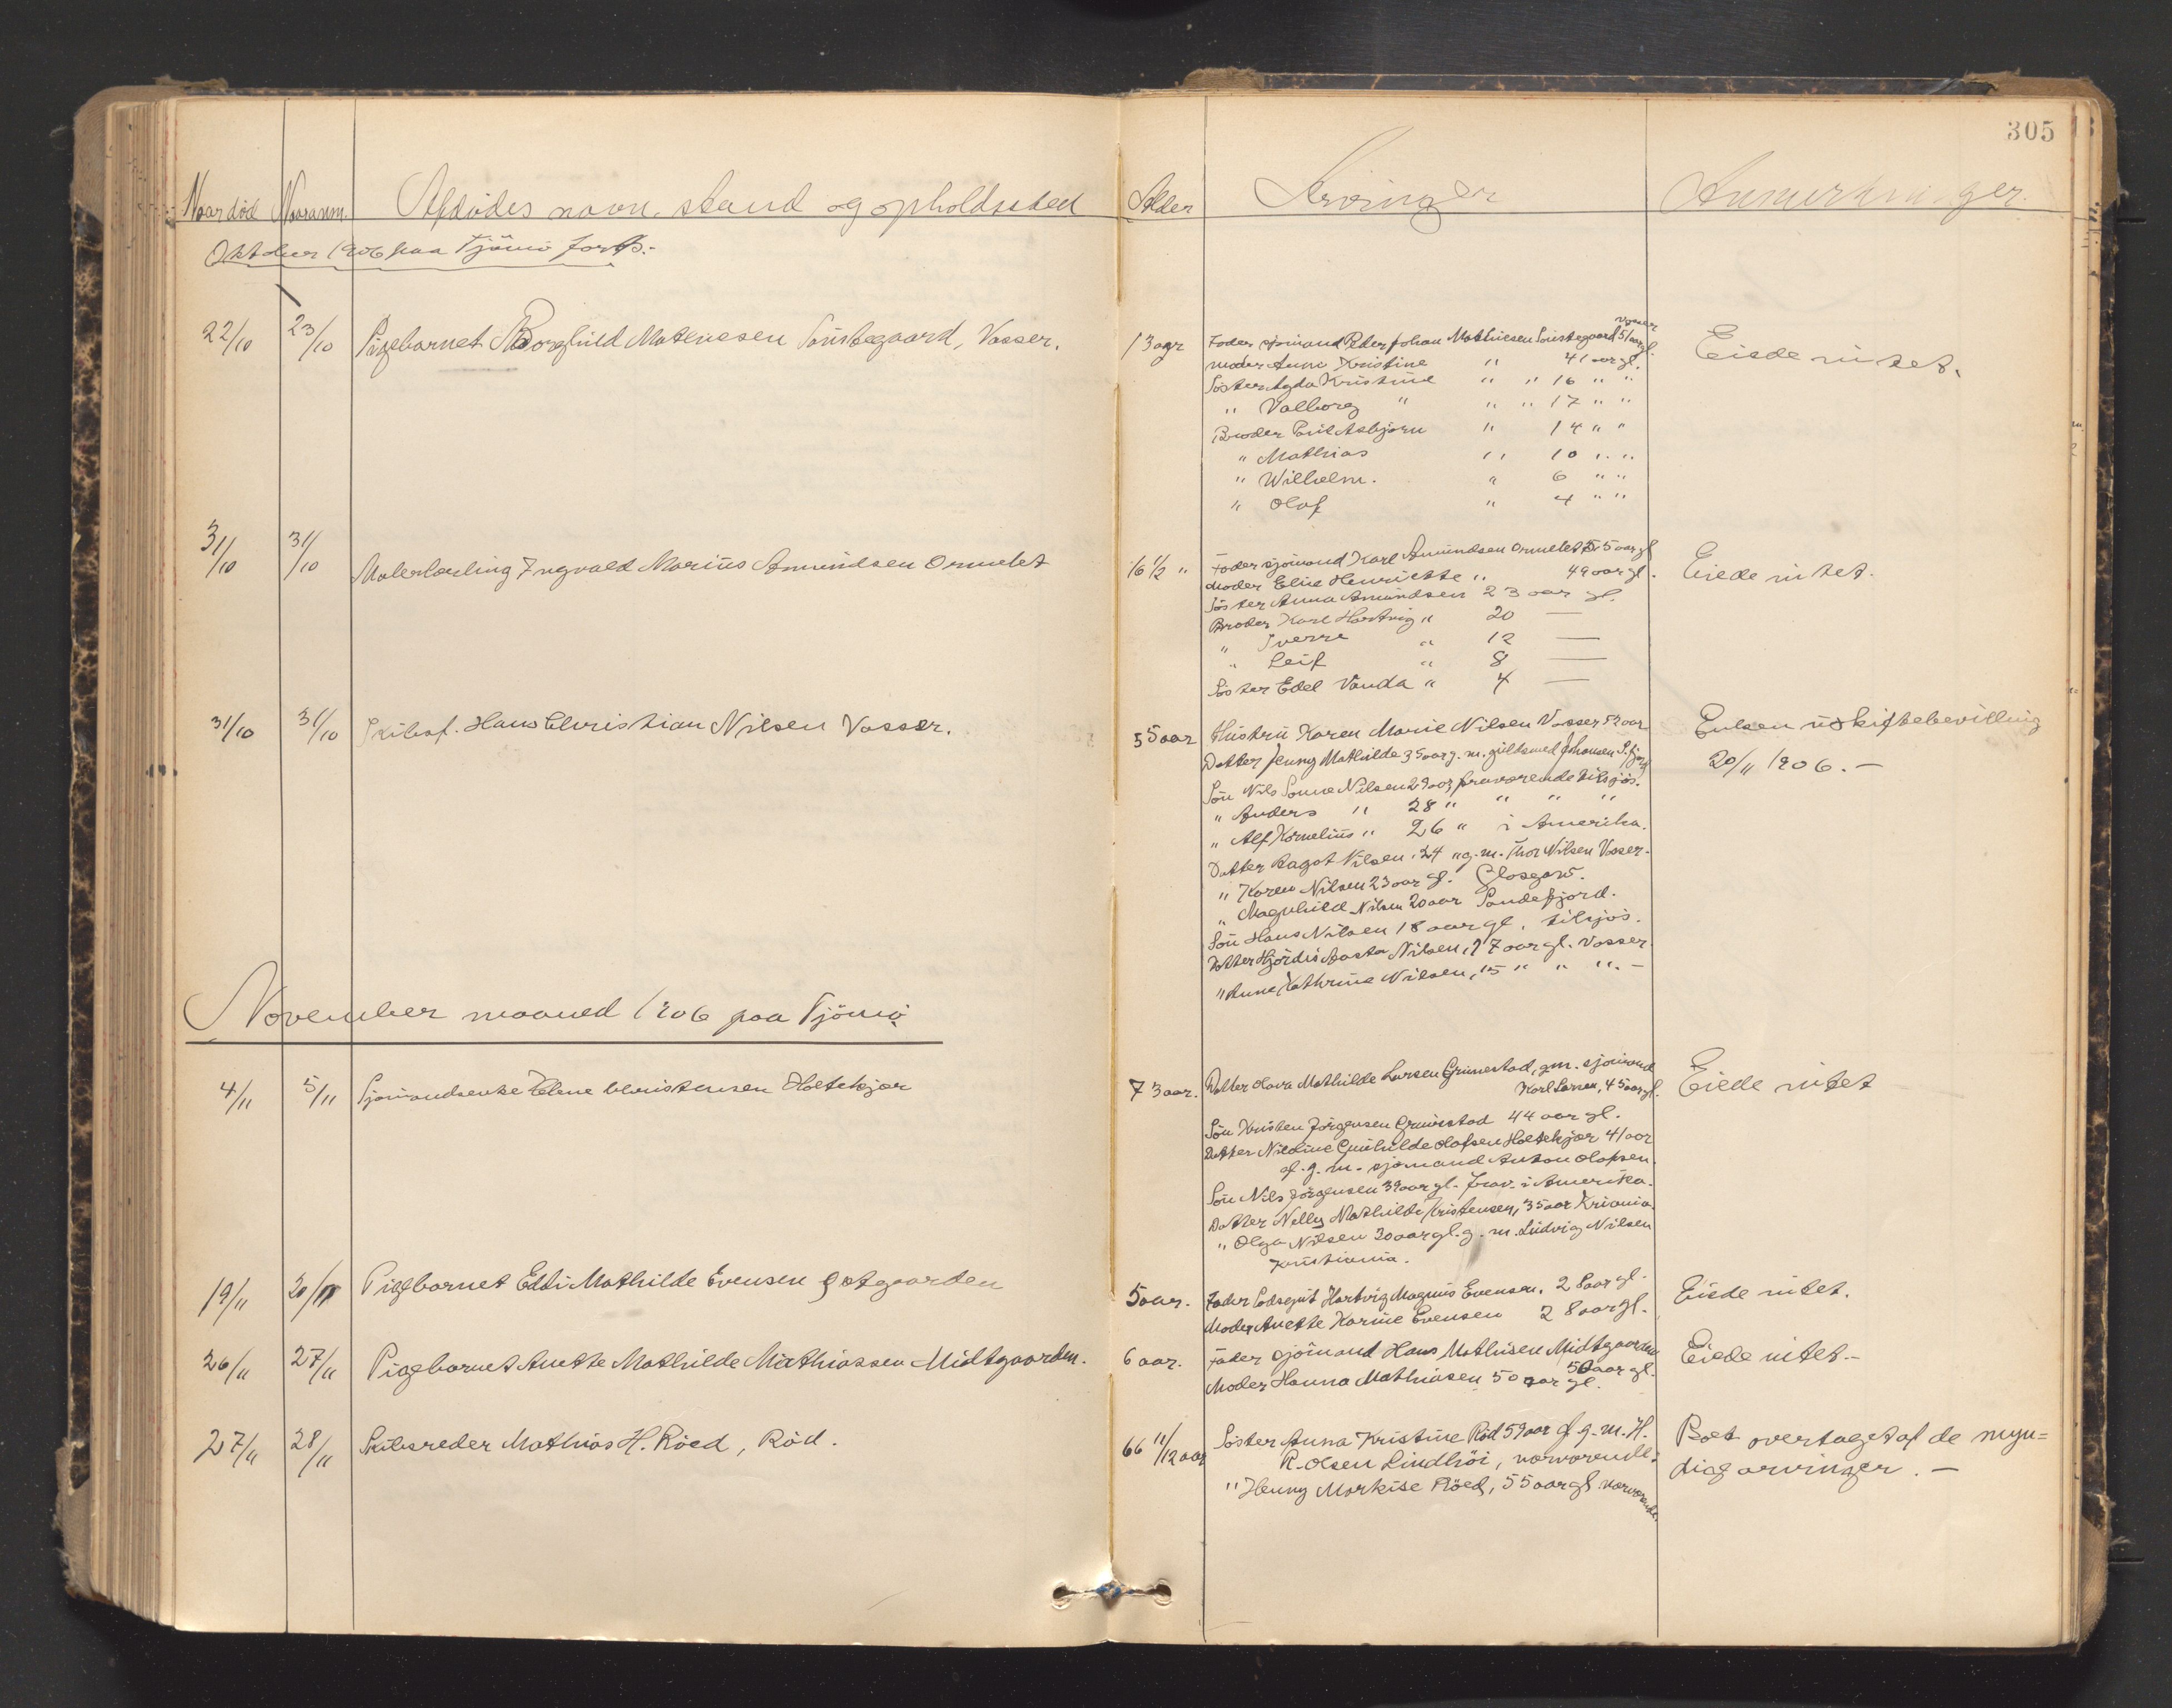 305
Naar død Naar anm. Afdødes navn, stand og opholdssted Alder Arvinger Anmerkninger.
Oktober 1906 paa Tjömö forts.-
22/10 23/10 Pigebarnet Borghild Mathiesen Sönstegaard, Vasser. 13 aar
Fader sjömand Peder Johan Mathiesen Sönstegaard Vasser 51 aar gl.
moder Anne Kristine " 41 aar gl.
Söster Agda Kristine " " 16 " "
" Valborg " " " 17 " "
Broder Emil Asbjörn " 14 " "
" Mathias " 10 " "
" Wilhelm. " 6 " "
" Olaf " 4 " "
Eiede intet.
31/10 31/10 Malerlærling Ingvald Marius Amundsen Ormelet 16 1/2 "
Fader sjömand Karl Amundsen Ormelet 55 aar gl
Moder Elise Henriette " 49 aar gl.
Söster Anna Amundsen 23 aar gl.
Broder Karl Hartvig " 20 —
" Sverre " 12 —
" Leif " 8 —
Söster Edel Vanda " 4 —
Eiede intet.
31/10 31/10 Skibsf. Hans Christian Nilsen Vasser. 55 aar
Hustru Karen Marie Nilsen Vasser 52 aar
Datter Jenny Mathilde 35 aar g. m. guldsmed Johansen S.fjord
Sön Nils Sonne Nilsen 29 aar fraværende tilsjös.
" Anders " 28 " " " "
" Alf Kornelius " 26 " i Amerika.
Datter Ragot Nilsen 24 " g. m. Thor Nilsen Vasser.
" Karen Nilsen 23 aar gl. Glasgow.
" Magnhild Nilsen 20 aar Sandefjord.
Sön Hans Nilsen 18 aar gl. tilsjös.
Datter Hjördis Aasta Nilsen, 17 aar gl. Vasser.
" Anne Kathrine Nilsen, 15 " " ". -
Enken uskiftebevilling
20/11 1906. -
November maaned 1906 paa Tjömö.
4/11 5/11 Sjömandsenke Helene Christensen Holtekjær 73 aar.
Datter Hava Mathilde Larsen Grimestad, gm. sjömand
Karl Larsen, 45 aar gl.
Sön Kristen Jörgensen Grimestad 44 aar gl.
Datter Nildine Gunhilde Olafsen Holtekjær 41 aar
gl. g. m. sjömand Anton Olafsen.
Sön Nils Jörgensen 39 aar gl. frav. i Amerika.
Datter Nelly Mathilde Kristensen, 35 aar Kriania.
" Olga Nilsen 30 aar gl. g. m. Ludvig Nilsen
Kristiania.
Eiede intet
19/11 20/11 Pigebarnet Edti Mathilde Evensen Östgaarden 5 aar.
Fader Lodsgut Hartvig Magnus Evensen, 28 aar gl.
Moder Anette Karine Evensen 28 aar gl.
Eiede intet.
26/11 27/11 Pigebarnet Anette Mathilde Mathiassen Midtgaarden. 6 aar.
Fader sjömand Hans Mathisen Midtgaarden
50 aar gl.
Moder Hanna Mathiasen 50 aar gl.
Eiede intet.-
27/11 28/11 Skibsreder Mathias H. Röed, Röd. 66 11/12 aar
Söster Anna Kristine Röd 59 aar gl. g. m. H.
R. Olsen Lindhöi, nærværende.
" Henny Markise Röed, 55 aar gl. nærværende.
Boet overtaget af de myn=
dige arvinger. -